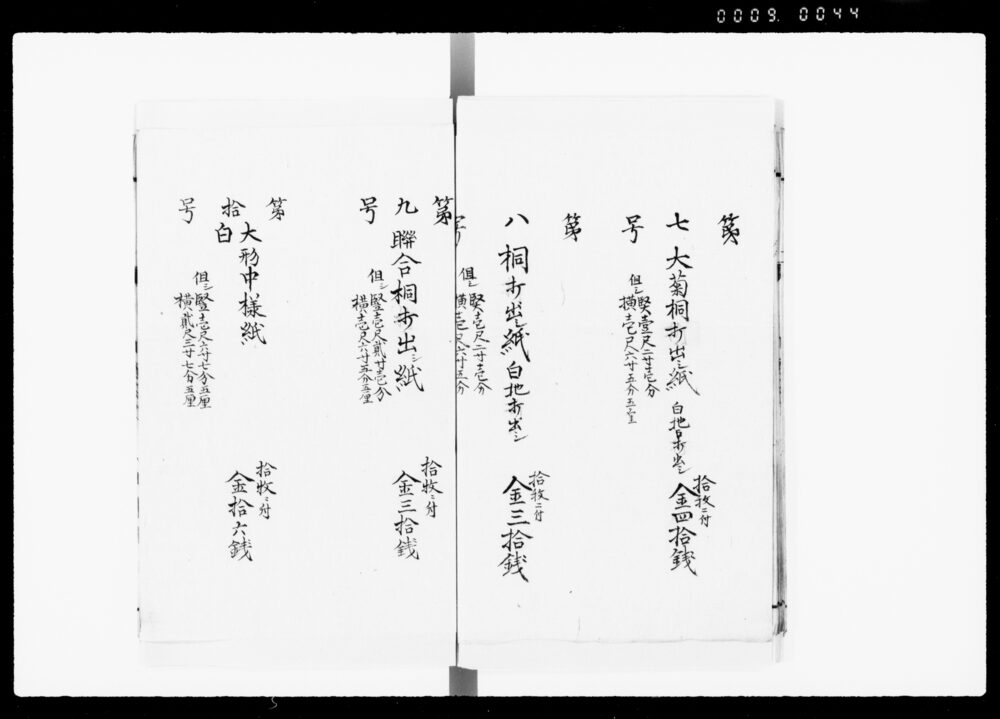 0009. 0044
第
七 大菊桐打出シ紙 白地打出シ
拾枚ニ付
金四拾銭
号
但シ 竪壹尺二寸壱分
横壱尺六寸五分五厘
第
八 桐打出シ紙 白地打出シ
拾枚ニ付
金三拾銭
号
但シ 竪壱尺二寸壱分
横壱尺六寸五分
第
九 聯合桐打出シ紙
拾枚ニ付
金三拾銭
号
但シ 竪壱尺貳寸壱分
横壱尺六寸五分五厘
第
拾 大形中様紙
白
拾枚ニ付
金拾六銭
号
但シ 竪壱尺六寸七分五厘
横貳尺三寸七分五厘